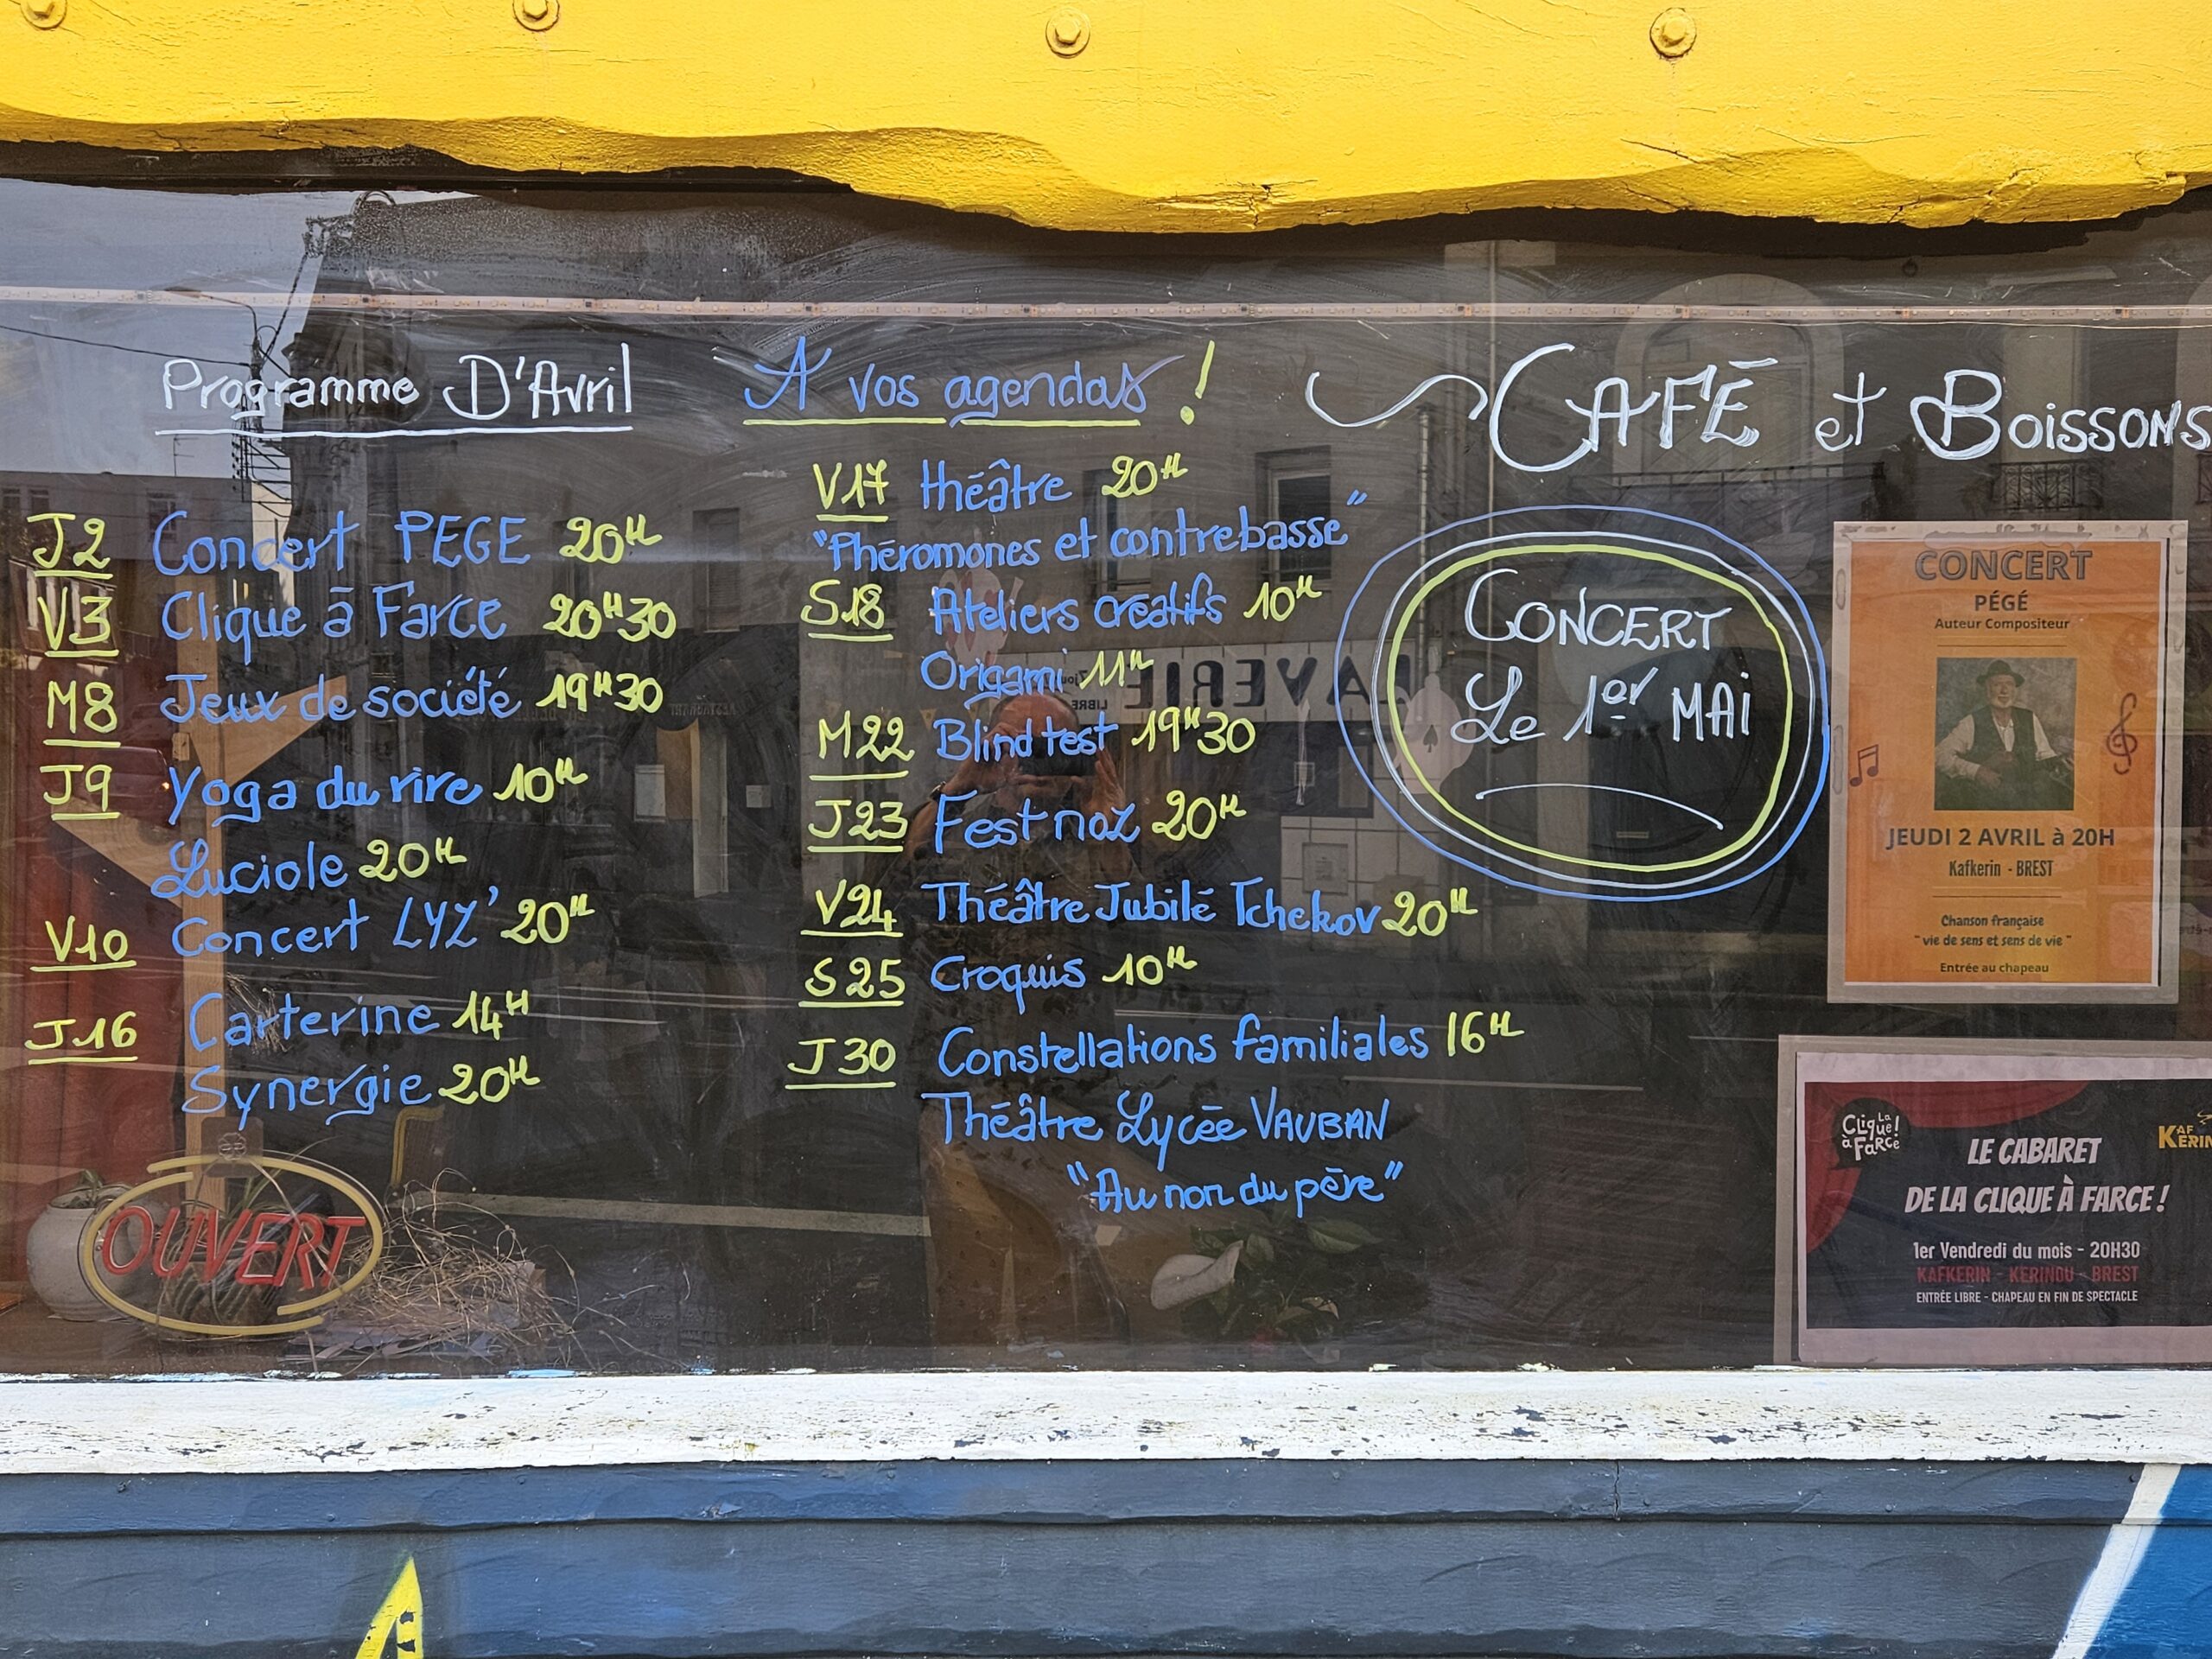 Programme D'Avril
J2 Concert PEGE 20H
V3 Clique à Farce 20H30
M8 Jeux de société 19H30
J9 Yoga du rire 10H
Luciole 20H
V10 Concert LYZ' 20H
J16 Carterine 14H
Synergie 20H
OUVERT
A vos agendas !
V17 théâtre 20H
"Phéromones et contrebasse"
S18 Ateliers creatifs 10H
Origami 11H
M22 Blind test 19H30
J23 Fest noz 20H
V24 Théâtre Jubilé Tchekov 20H
S25 Croquis 10H
J30 Constellations familiales 16H
Théâtre Lycée VAUBAN
"Au non du père"
LAVERIE
LIBRE
CAFÉ et BOISSONS
CONCERT
Le 1er MAI
CONCERT
PÉGÉ
Auteur Compositeur
JEUDI 2 AVRIL à 20H
Kafkerin - BREST
Chanson française
"vie de sens et sens de vie"
Entrée au chapeau
La Clique! à Farce
KAF
KERIN
LE CABARET
DE LA CLIQUE À FARCE !
1er Vendredi du mois - 20H30
KAFKERIN - KERINOU - BREST
ENTRÉE LIBRE - CHAPEAU EN FIN DE SPECTACLE